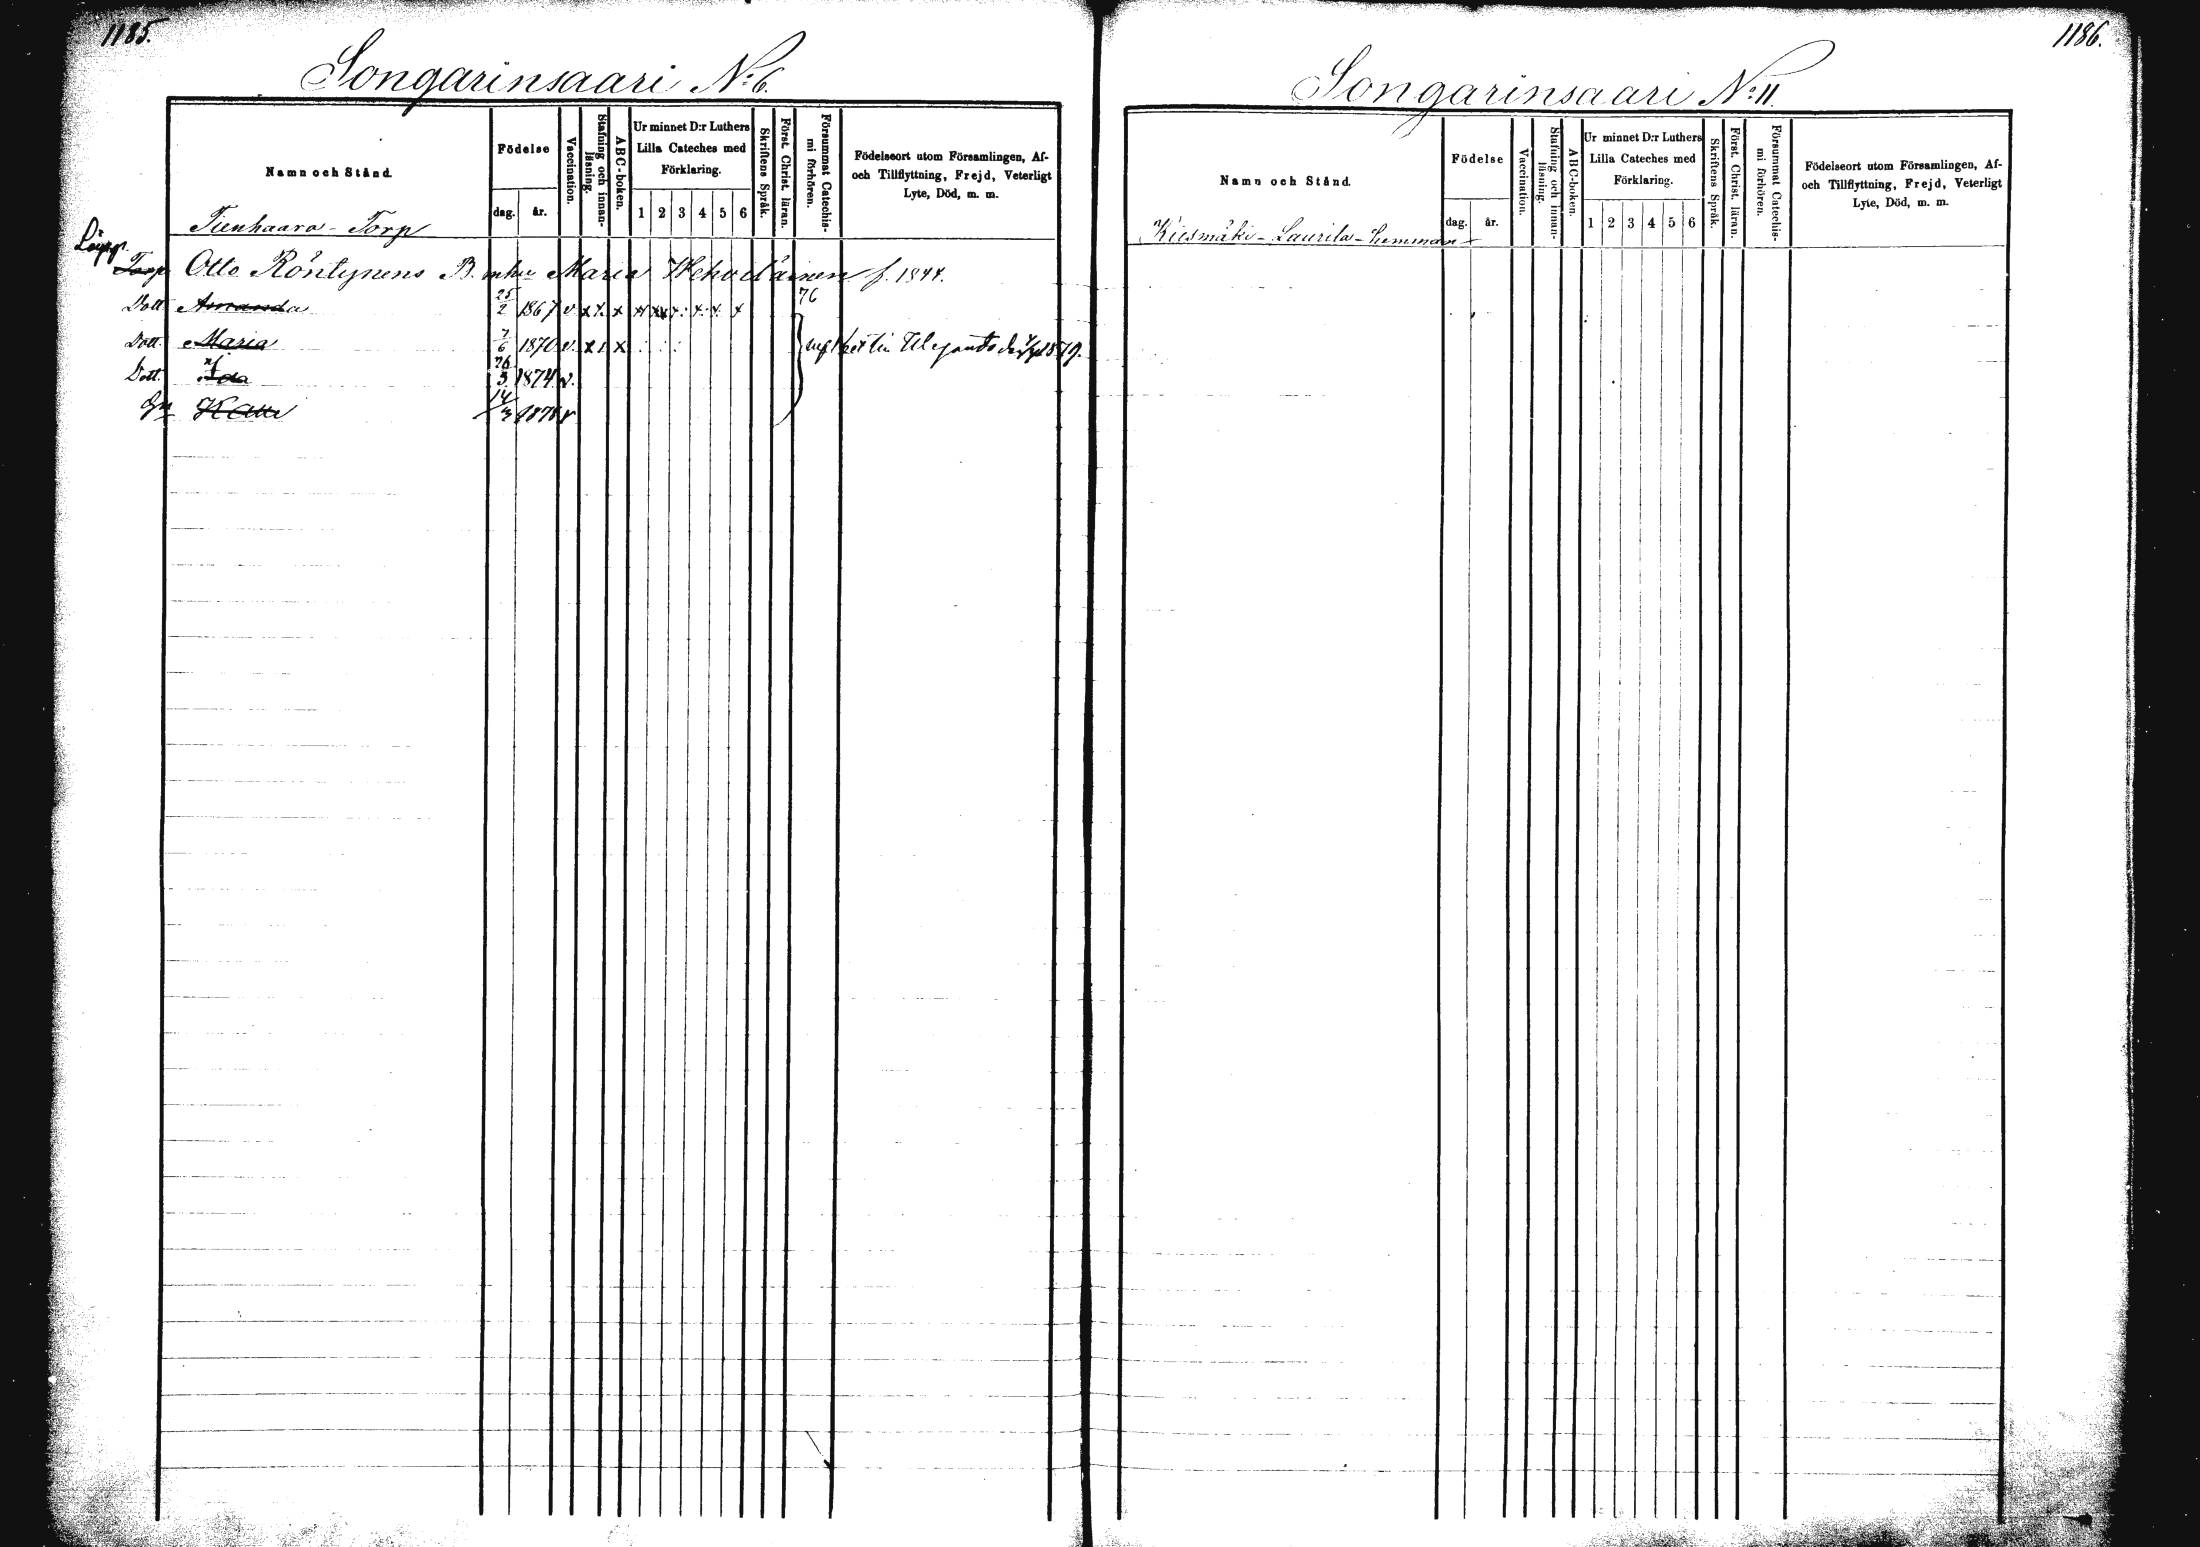 1185.
Songarinsaari N:o 6.
Namn och Stånd.
Födelse
dag.
år.
Vaccination.
Stafning och innan-
läsning.
ABC-boken.
Ur minnet D:r Luthers
Lilla Cateches med
Förklaring.
1 2 3 4 5 6
Skriftens Språk.
Först. Christ. läran.
Försummat Catechis-
mi förhören.
Födelseort utom Församlingen, Af-
och Tillflyttning, Frejd, Veterligt
Lyte, Död, m. m.
Tienhaara - Torp
Torp Otto Röntynens B. Maria f. 1844.
Dott Amanda 25/2 1867 v x x x 76
Dott. Maria 7/6 1870 v. x x
Dott. Ida 26/3 1874 v.
14/3 1878 v
1186.
Songarinsaari N:o 11.
Namn och Stånd.
Födelse
dag.
år.
Vaccination.
Stafning och innan-
läsning.
ABC-boken.
Ur minnet D:r Luthers
Lilla Cateches med
Förklaring.
1 2 3 4 5 6
Skriftens Språk.
Först. Christ. läran.
Försummat Catechis-
mi förhören.
Födelseort utom Församlingen, Af-
och Tillflyttning, Frejd, Veterligt
Lyte, Död, m. m.
Kiesmäki - Laurila - hemman